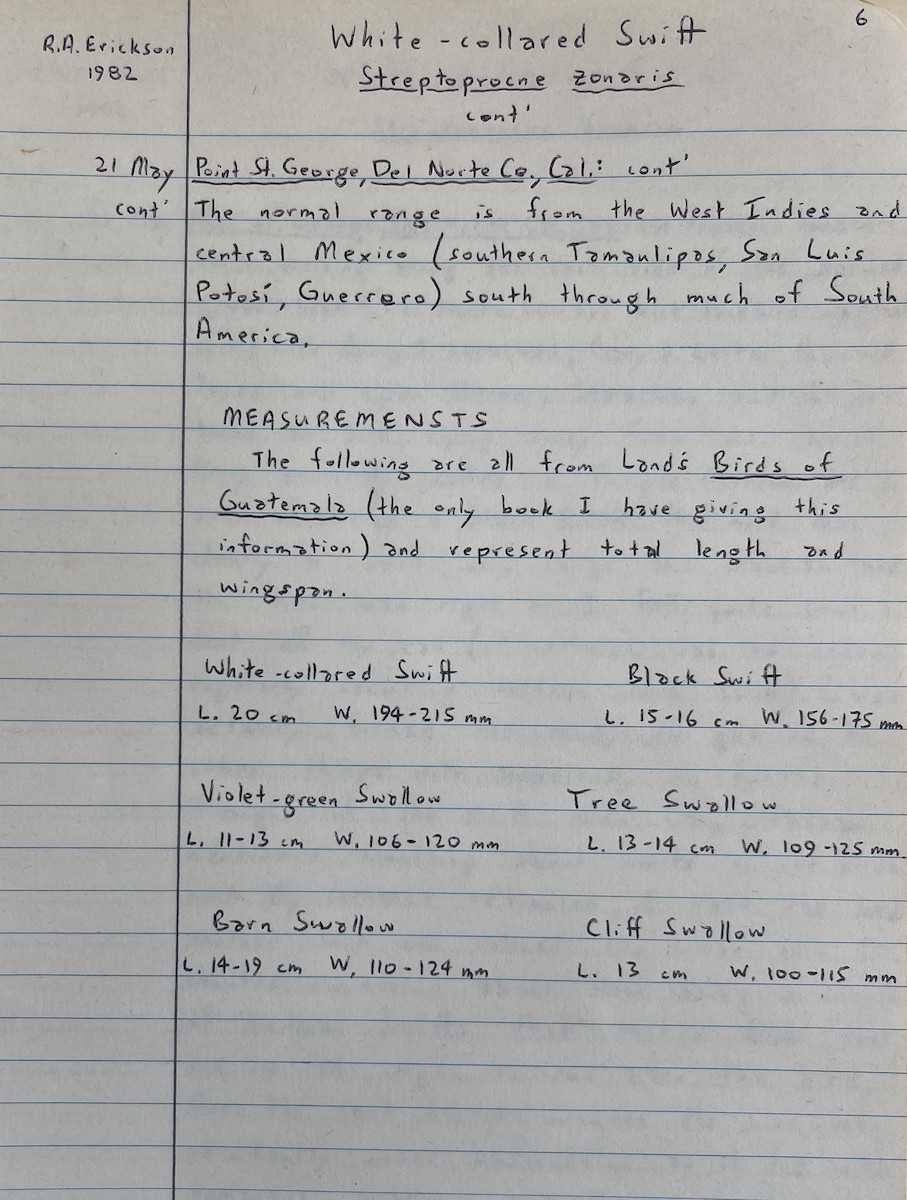 6
R.A. Erickson
1982
White-collared Swift
Streptoprocne zonaris
cont'
21 May
cont'
Point St. George, Del Norte Co., Cal.: cont'
The normal range is from the West Indies and
central Mexico (southern Tamaulipas, San Luis
Potosí, Guerrero) south through much of South
America.
MEASUREMENSTS
The following are all from Land's Birds of
Guatemala (the only book I have giving this
information) and represent total length and
wingspan.
White-collared Swift Black Swift
L. 20 cm W. 194-215 mm L. 15-16 cm W. 156-175 mm
Violet-green Swallow Tree Swallow
L. 11-13 cm W. 106-120 mm L. 13-14 cm W. 109-125 mm.
Barn Swallow Cliff Swallow
L. 14-19 cm W. 110-124 mm L. 13 cm W. 100-115 mm